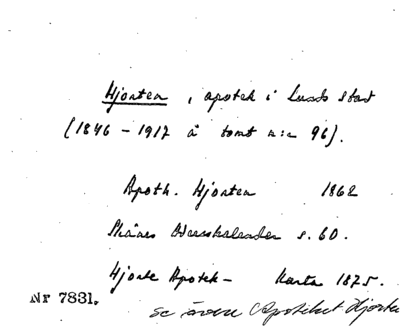 Hjorten, apotek i Lunds stad
(1846 - 1917 å tomt n:r 96).
Apoth. Hjorten 1862
Skånes Adresskalender s. 60.
Hjorte Apotek - Karta 1875.
Nr 7831.
se även Apoteket Hjorten